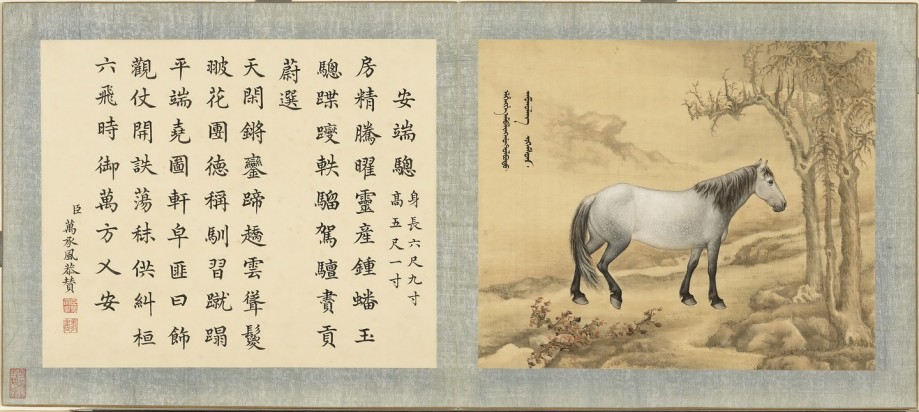 安端驄
身長六尺九寸
高五尺一寸
房精騰曜靈産鍾蟠玉
驄蹀躞軼騮駕驙賷貢
蔚選
天閑鏘鑾蹄趫雲聳鬉
花團德稱馴習蹴蹋
平端堯圖軒皁匪曰飾
觀仗開詄蕩秣供糾桓
六飛時御萬方乂安
臣萬承風恭贊